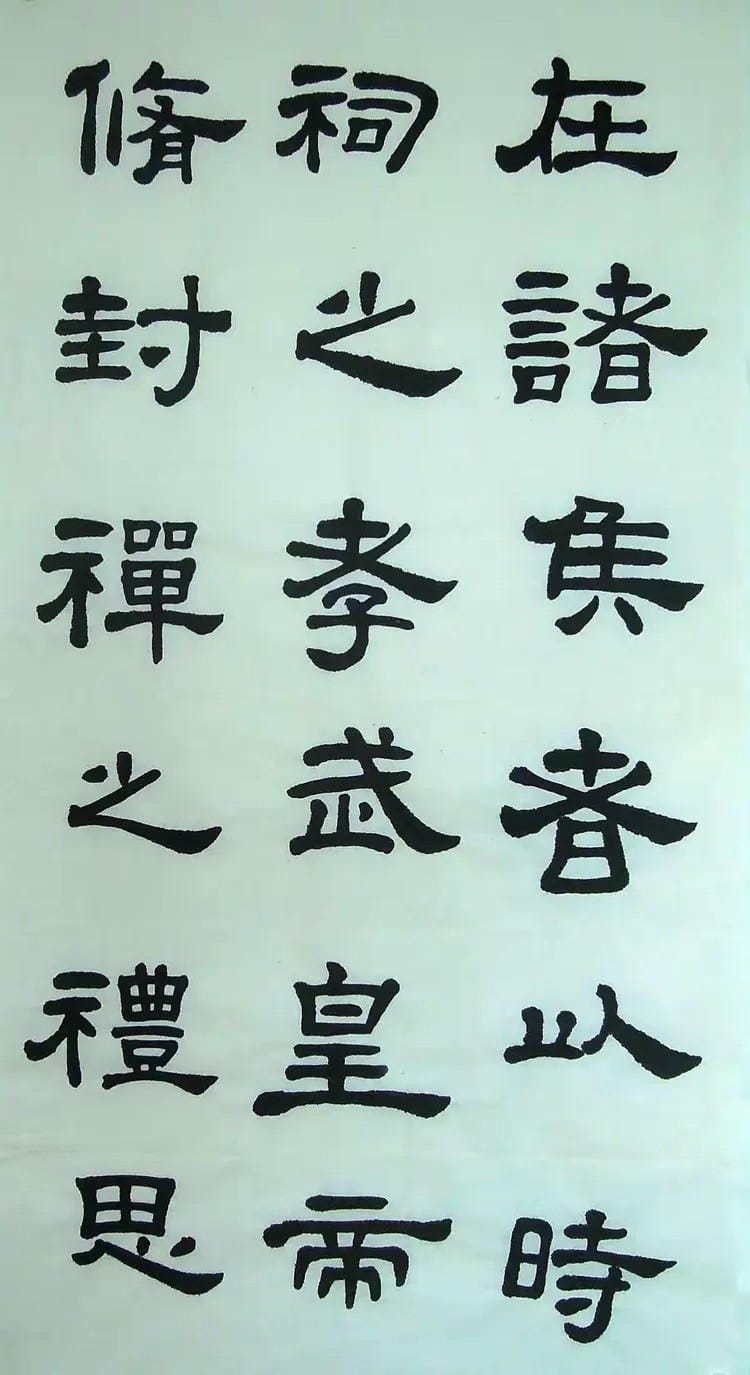 在諸矦者以時
祠之孝武皇帝
脩封禪之禮思